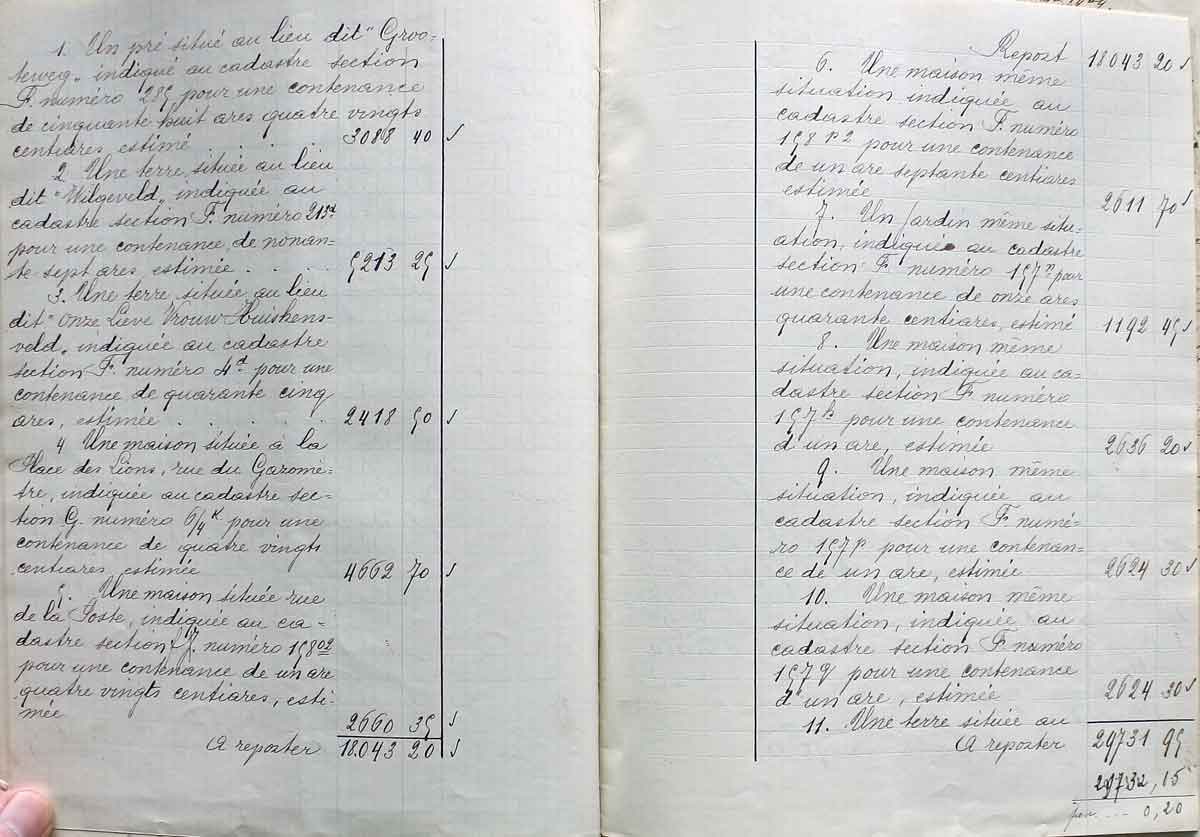 1. Un pré situé au lieu dit "Groo-
teweg" indiqué au cadastre section
F. numéro 285 pour une contenance
de cinquante huit ares quatre vingts
centiares, estimé . . . . . 3088 40 √
2. Une terre, située au lieu
dit "Wilgeveld" indiquée au
cadastre section F. numéro 213d
pour une contenance, de nonan-
te sept ares, estimée . . . . 5213 25 √
3. Une terre, située au lieu
dit "Onze Lieve Vrouw Huiskens-
veld" indiquée au cadastre
section F. numéro 4d pour une
contenance de quarante cinq
ares, estimée . . . . . 2418 50 √
4 Une maison située à la
Place des Lions, rue du Gazomè-
tre, indiquée au cadastre sec-
tion G. numéro 6/4k pour une
contenance de quatre vingts
centiares, estimée 4662 70 √
5. Une maison située rue
de la Poste, indiquée au ca-
dastre section F. numéro 158o2
pour une contenance de un are
quatre vingts centiares, esti-
mée 2660 35 √
A reporter 18.043 20 √
Report 18043 20 √
6. Une maison même
situation indiquée au
cadastre section F. numéro
158p2 pour une contenance
de un are septante centiares
estimée 2611 70 √
7. Un Jardin même situ-
ation, indiquée au cadastre
section F. numéro 157n pour
une contenance de onze ares
quarante centiares, estimé 1192 45 √
8. Une maison même
situation, indiquée au ca-
dastre section F numéro
157 pour une contenance
d'un are, estimée 2636 20 √
9. Une maison même
situation, indiquée au
cadastre section F numé-
ro 157p pour une contenan-
ce de un are, estimée 2624 30 √
10. Une maison même
situation, indiquée au
cadastre section F numéro
157q pour une contenance
d'un are, estimée 2624 30 √
11. Une terre située au
A reporter 29731 95
29732,15
0,20